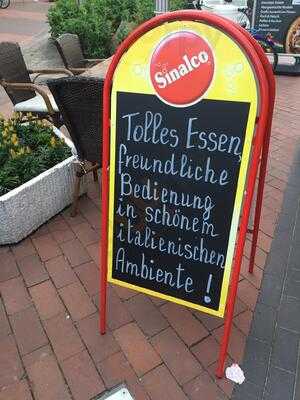 Sinalco
Tolles Essen,
freundliche
Bedienung
in schönem
italienischen
Ambiente !